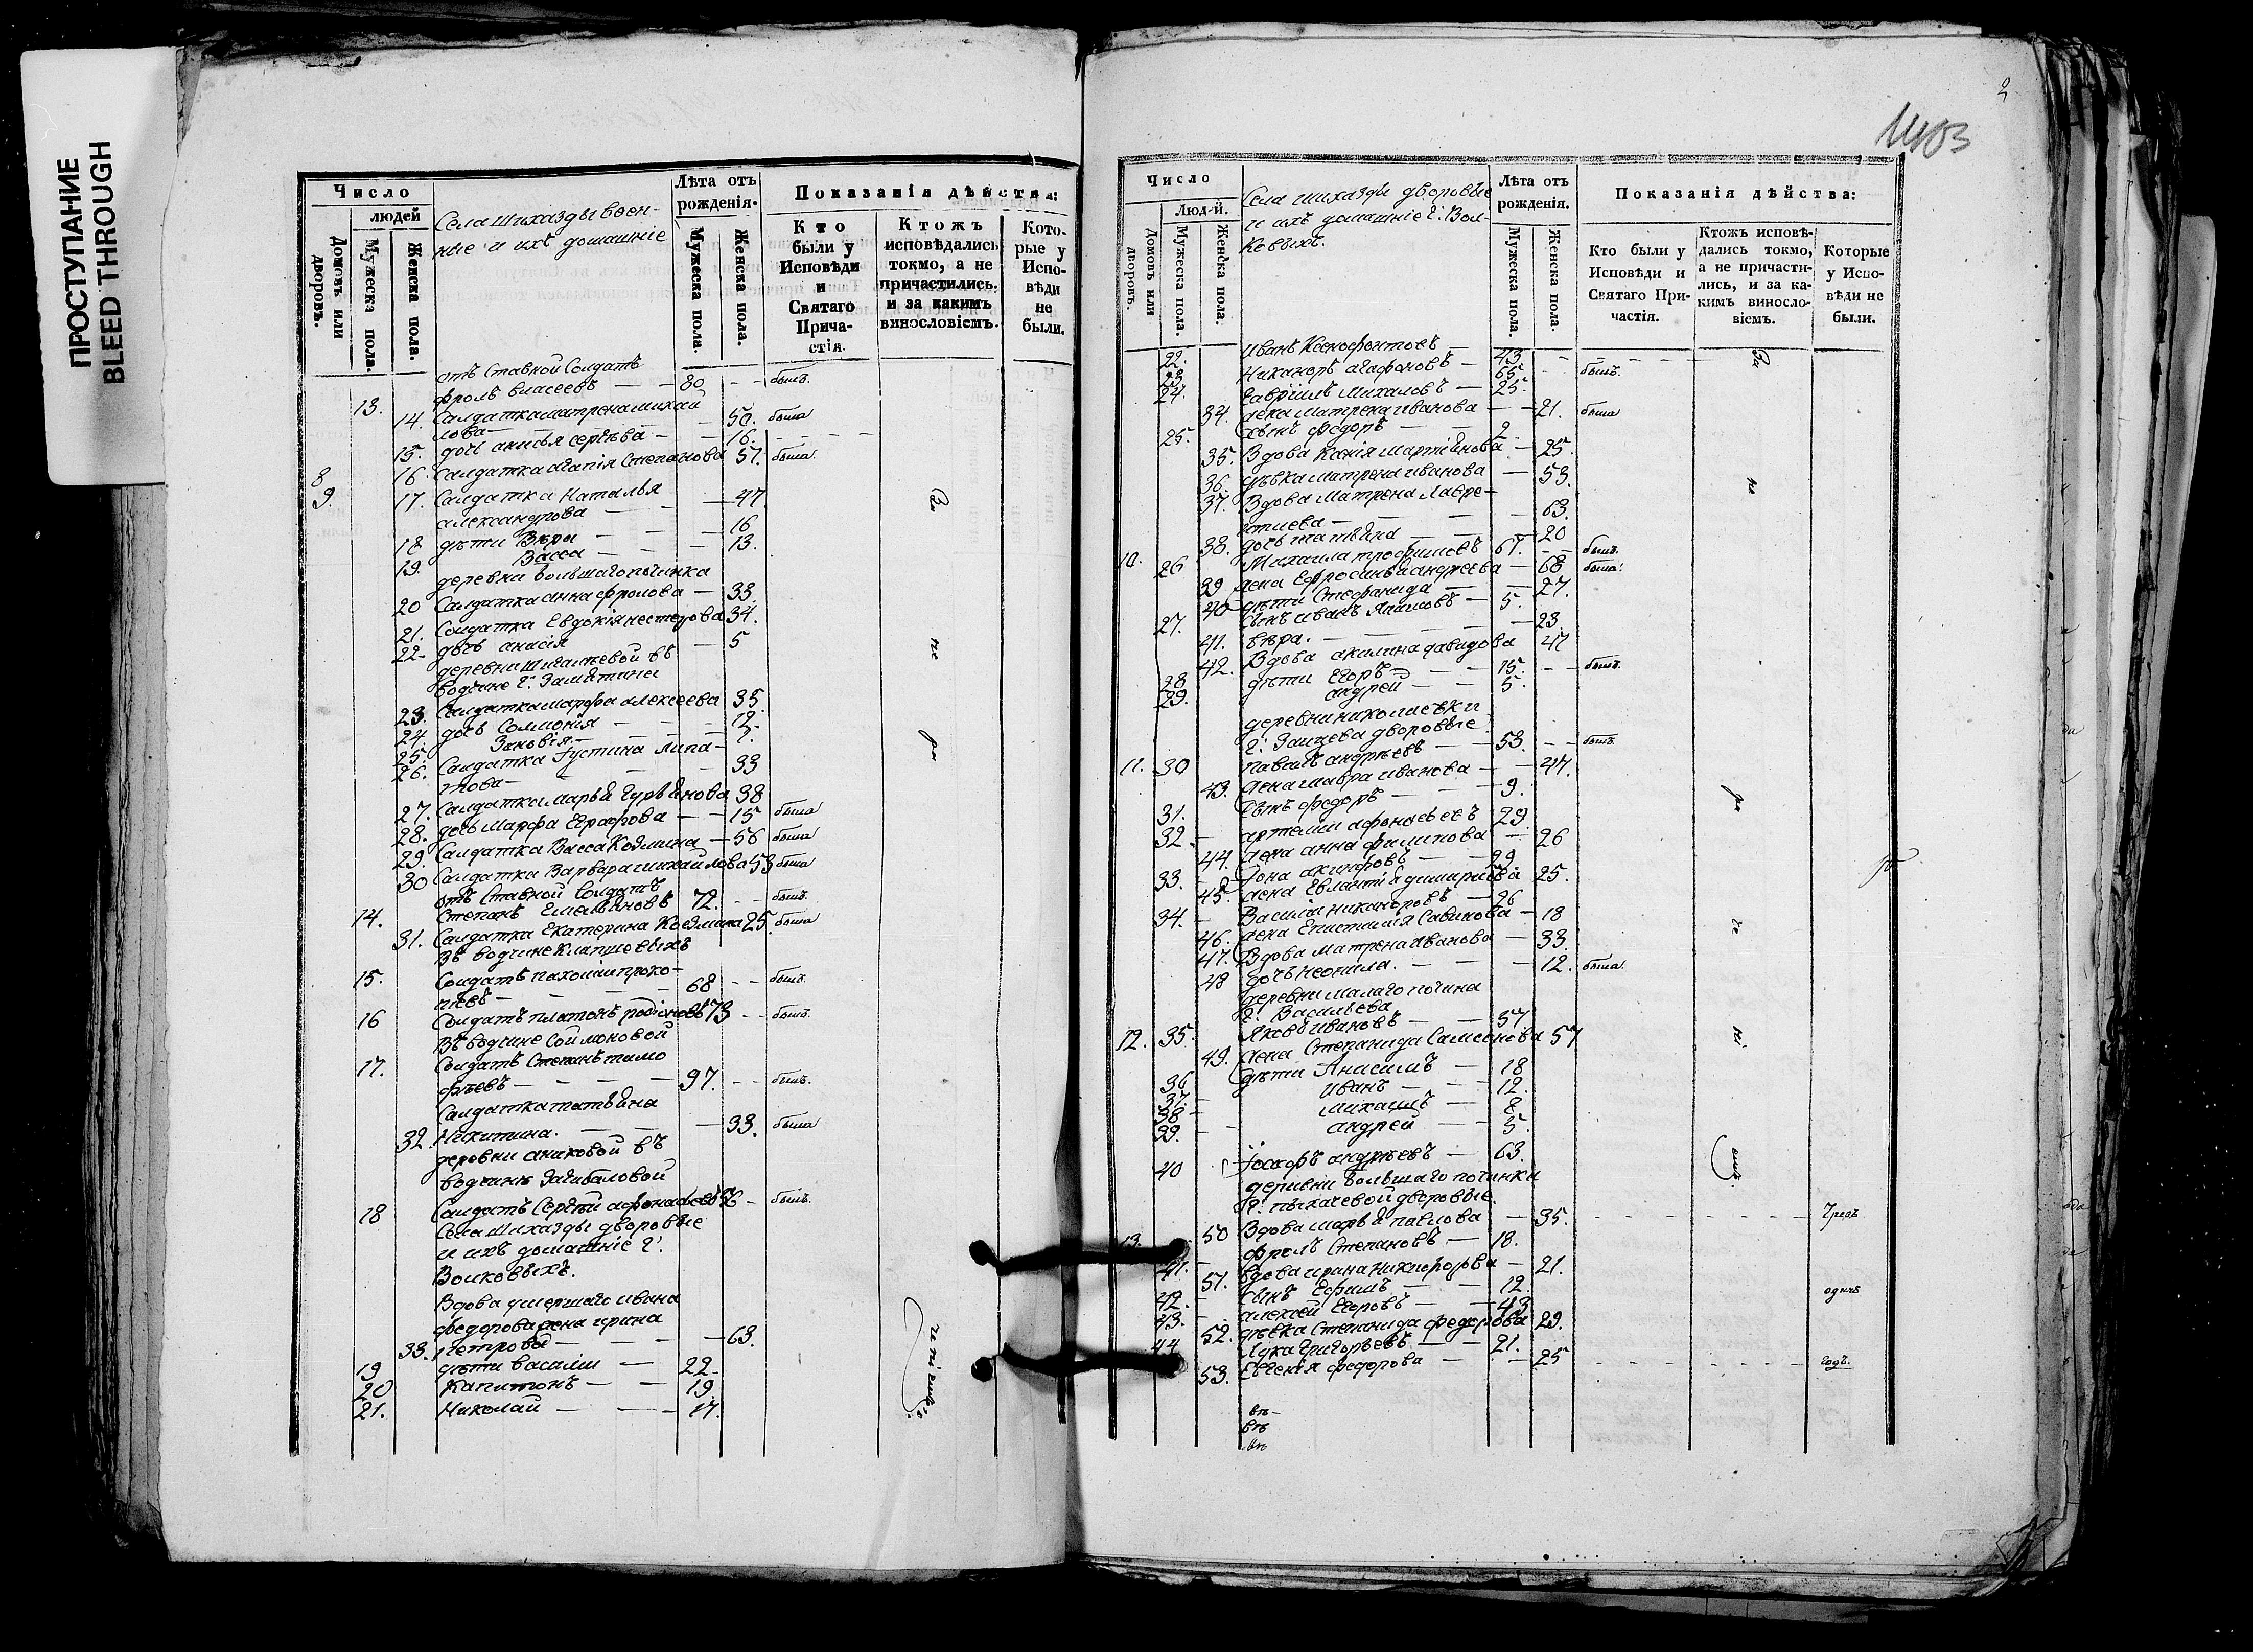 ПРОСТУПАНИЕ
BLEED THROUGH
Число
людей
Домовъ или дворовъ.
Мужеска пола.
Женска пола.
Села Шихазды воен-
ные и ихъ домашніе
Лѣта отъ рожденія.
Мужеска пола.
Женска пола.
Показанія дѣйства:
Кто были у Исповѣди и Святаго Прича-стія
Ктожъ исповѣдались токмо, а не причастились. и за какимъ винословіемъ.
Кото-рые у Испо-вѣди не были.
отъ ставной Солдатъ
13. фролъ власеевъ — — 80 — — былъ.
14. Салдатка матрена михай
лова — — 50. была
15. дочь анисья сергѣева — — 16. — — —
8 16. Салдатка агапія Степанова 57. была.
9. 17. Салдатка Наталья
александрова — — 47.
18 дѣти Вѣра — — 16
19. Васса — — — 13.
деревни большаго починка
20 Салдатка анна фролова — 33.
21. Солдатка Евдокія нестерова 34.
22. дочь — 5
деревни
водчине Г.
23. Салдатка марфа алексеева 35.
24. дочь Соломонія — — — 12.
25. Зановія. — — — 7.
26. Салдатка Густина Липа-
това — — — 33
27. Салдатка Марья Гурьянова 38
28. дочь Марфа Евграфова — — 15 была
29. Салдатка Васса Козмина — 56 была
30 Салдатка Варвара михайлова 53 была
отъ ставной Солдатъ
14. Степанъ Емельяновъ 72. — — былъ.
31. Салдатка Екатерина Козмина 25. была
Въ водчине
15. Солдатъ пахомій проко-
пьевъ — — — — 68 — — былъ.
16 Солдатъ платонъ родіоновъ 73 — — былъ.
Въ водчине Соймоновой
17. Солдатъ Степанъ тимо
фѣевъ — — — — 97. — — былъ.
Салдатка татьяна
32. Никитина. — — — 33. была
деревни аниковой въ
водчинѣ
18 Салдатъ Сергѣй афонасьевъ 56 — былъ.
Села Шихазды дворовые
и ихъ домашніе Г.
Волковыхъ.
Вдова умершаго ивана
федорова жена ирина
33. петрова — — — 63.
19 дѣти василій — 22.
20 Капитонъ — — 19.
21. Николай — — 17.
За
не
ра
ченіемъ
1403
Число
Люд-й.
Домовъ или дворовъ.
Мужеска пола.
Женска пола.
Села шихазды дворовые
и ихъ домашніе Г. Вол-
ковыхъ.
Лѣта отъ рожденія.
Мужеска пола.
Женска пола.
Показанія дѣйства:
Кто были у Исповѣди и Святаго При-частія.
Ктожъ исповѣ-дались токмо, а не причасти-лись, и за ка-кимъ винословіемъ.
Которые у Испо-вѣди не были.
22. Иванъ Ксенофонтовъ — 43. — — — —
23. Никаноръ агафоновъ — 65. — — былъ.
24. Гавріилъ Михаловъ — 25.
34. жена матрена иванова — — 21. была
25. Сынъ федоръ — — 2.
35. Вдова Ксенія мартiянова — 25.
36. дѣвка матрена иванова — 53.
37. Вдова Матрена Лавре-
нтиева — — — 63.
38. дочь татьяна — — 20
10. 26 Михаила трофимовъ 67. — — былъ.
39 жена Ефросинья андреева — 68 была.
40 дѣти Стефанида — — 27.
27. Сынъ иванъ — 5.
41. вѣра. — — — — 23.
42. Вдова акилина давидова 47
28 дѣти Егоръ — — 15. — — былъ.
29. андрей — — 5.
деревни николаевки
Г. Зайцева дворовые
11. 30 павелъ андреевъ — — 53. — — былъ.
43. жена мавра иванова — — 47.
31. Сынъ федоръ — — — 9.
32 — артемій афонасьевъ 29.
44. жена анна филипова — 26
33. Іона акинфовъ — — 29
45. жена Евлампія димитріева 25.
34. — Василій никаноровъ — 26
46. жена Епистимія Савинова — 18
47. Вдова матрена иванова — 33.
48 дочь неонила. — — — 12. была.
деревни малаго почина
Г. Васильева
12. 35. Яковъ ивановъ — — 57
49. жена Степанида Самсонова 57
36 дѣти Анисимъ — 18
37. — иванъ — — 12.
38 — михаилъ — 8.
39. — — андрей — — 5.
40 Іосифъ андреевъ — 63.
деревни большаго починки
Г. дворовые.
13. 50 Вдова марья павлова — 35. — — — — — — Грехъ
41. фролъ Степановъ — 18.
51. вдова ирина Никифорова — 21.
42. — Сынъ Ефимъ — — 12. одинъ
43. — алексей Егоровъ — — 43
52. дѣвка Степанида федорова 29.
44 Лука Григорьевъ — — 21.
53. Евгенія федорова — — 25 — — — — — годъ.
За
не
ра
че
ні
емъ.